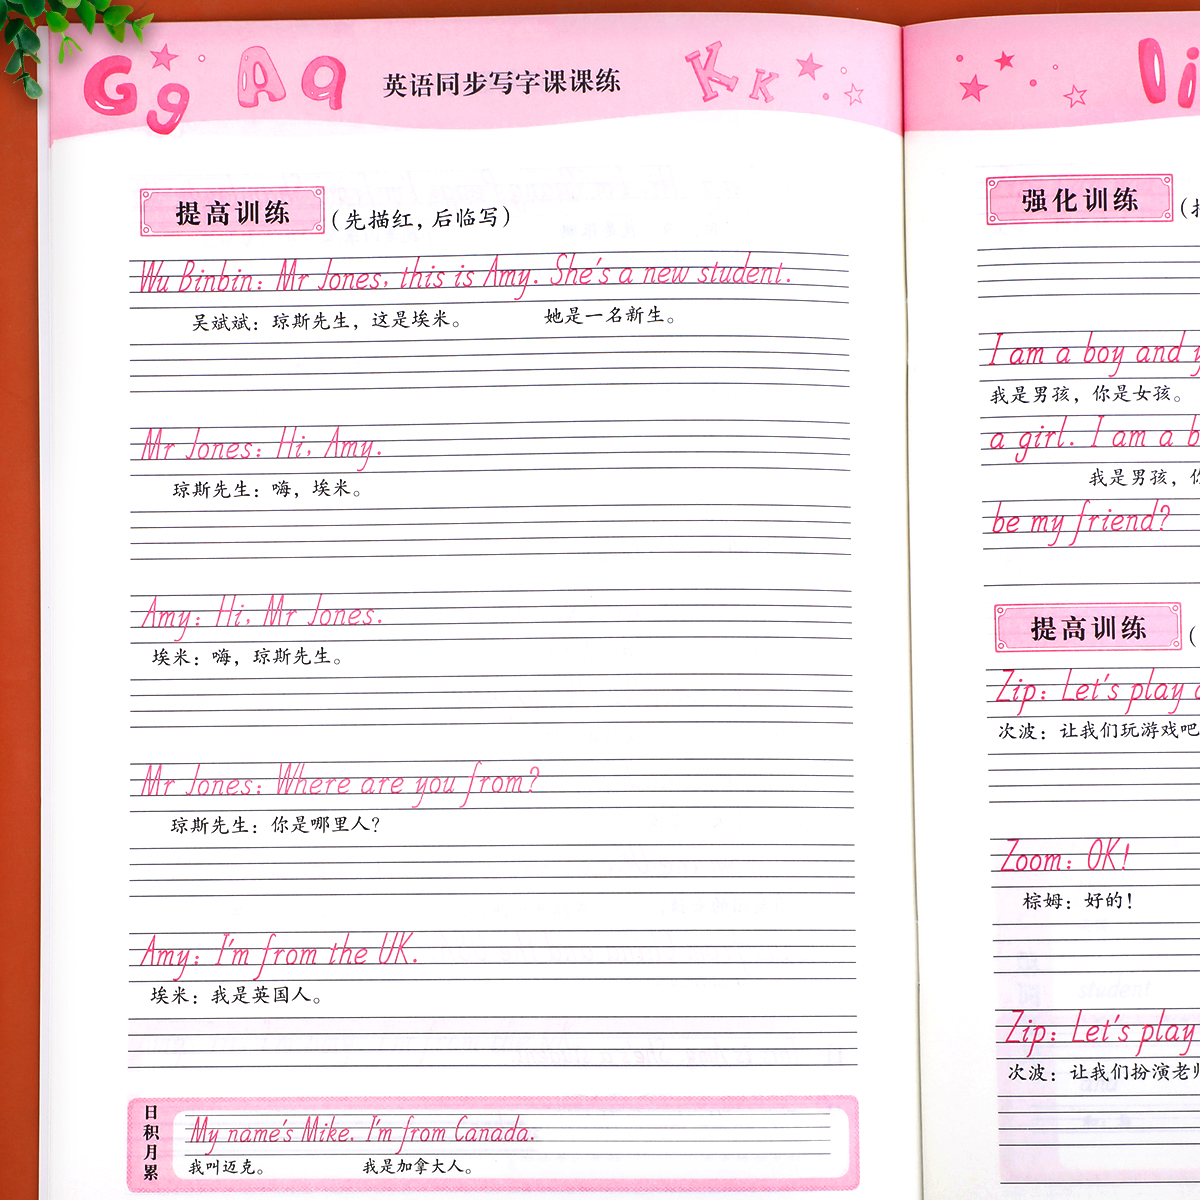 Gg Aa
英语同步写字课课练
Kk
提高训练 (先描红,后临写)
Wu Binbin: Mr Jones, this is Amy. She's a new student.
吴斌斌：琼斯先生，这是埃米。 她是一名新生。
Mr Jones: Hi, Amy.
琼斯先生：嗨，埃米。
Amy: Hi, Mr Jones.
埃米：嗨，琼斯先生。
Mr Jones: Where are you from?
琼斯先生：你是哪里人？
Amy: I'm from the UK.
埃米：我是英国人。
日积月累
My name's Mike. I'm from Canada.
我叫迈克。 我是加拿大人。
强化训练
I am a boy and
我是男孩，你是女孩。
a girl. I am a b
我是男孩，
be my friend?
提高训练
Zip: Let's play
次波：让我们玩游戏吧
Zoom: OK!
棕姆：好的！
Zip: Let's play
次波：让我们扮演老师